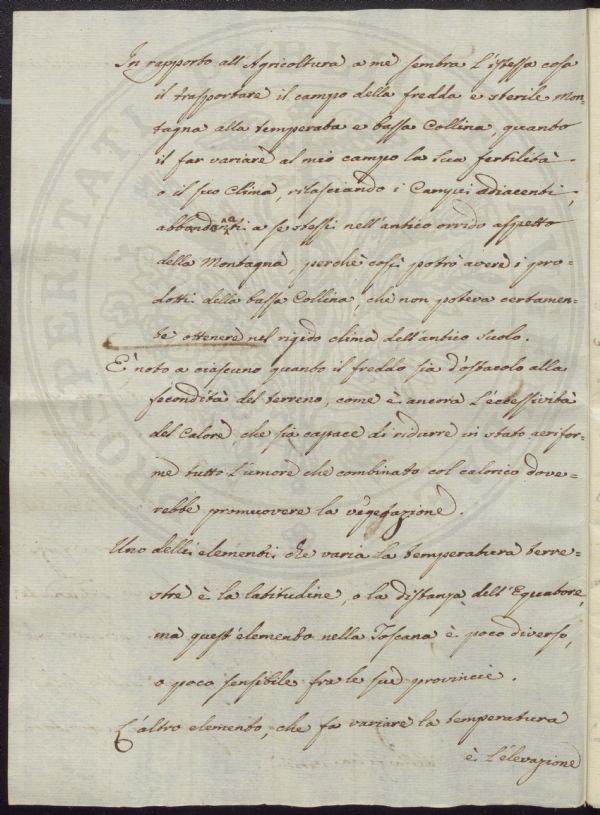 In rapporto all'Agricoltura a me sembra l'istessa cosa
il trasportare il campo della fredda e sterile Mon-
tagna alla temperata e bassa Collina, quanto
il far variare al mio campo la sua fertilità
o il suo Clima, rilasciando i Campi adiacenti,
abbandonati a se stessi nell'antico orrido aspetto
della Montagna perchè così potrò avere i pro-
dotti della bassa Collina, che non poteva certamen-
te ottenere nel rigido clima dell'antico suolo.
È noto a ciascuno quanto il freddo sia d'ostacolo alla
fecondità del terreno, come è ancora l'eccessività
del Calore, che sia capace di ridurre in stato aerifor-
me tutto l'umore che combinato col calorico dove-
rebbe promuovere la vegegazione.
Uno delli elementi che varia la temperatura terre-
stre è la latitudine, o la distanza dell'Equatore,
ma quest'elemento nella Toscana è poco diverso,
o poco sensibile fra le sue provincie.
L'altro elemento, che fa variare la temperatura
è l'elevazione